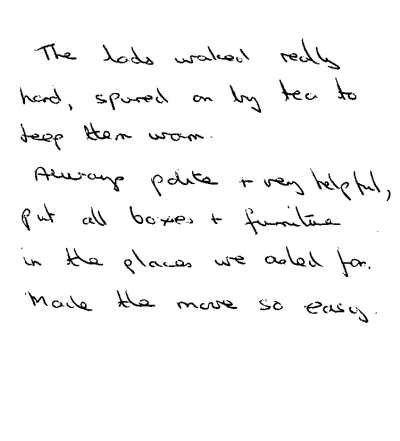 The lads worked really
hard, spured on by tea to
keep them warm.
Always polite + very helpful,
put all boxes + furniture
in the places we asked for.
Made the move so easy.